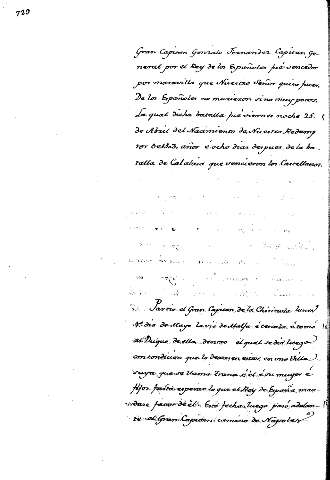 729
Gran Capitan Gonzalo Fernandez Capitan Ge-
neral por el Rey de los Españoles fué vencedor
por maravilla que Nuestro Señor quiso hacer.
De los Españoles no murieron sino muy pocos.
La qual dicha batalla fué viernes noche 28.
de Abril del Nacimiento de Nuestro Redemp
tor años é ocho dias despues de la ba-
talla de Calabria que vencieron los Castellanos.
Partió el Gran Capitan de la Chirinola
dia de Mayo la via de Malfa é cercola, é tomó
al Duque de ella dentro el qual se dió luego
con condicion que lo dexasen estar en una Villa
suya que se llama Trana é él é su muger é
fijos fasta esperar lo que el Rey de España man-
dase facer de él. Esto fecho luego pasó adelan-
te el Gran Capitan camino de Napoles